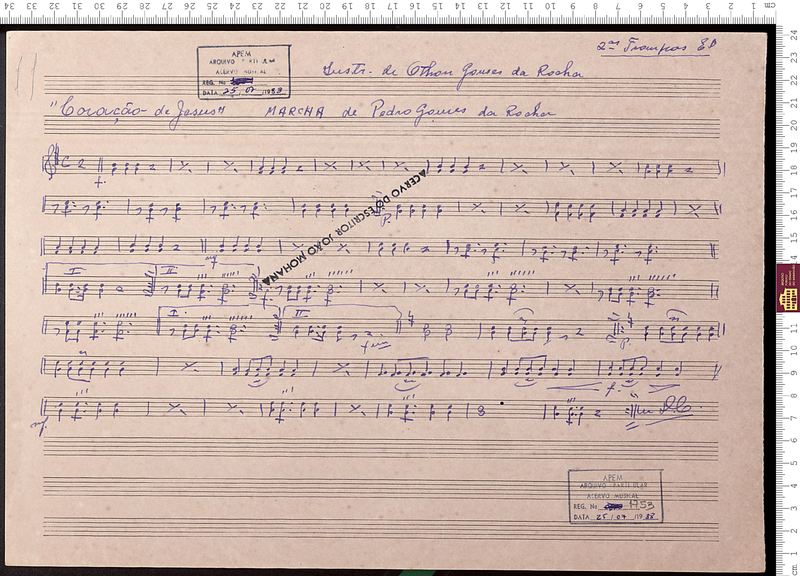 2as Trompas Eb
Instr. de Othon Gomes da Rocha
APEM
ARQUIVO PARTICULAR
ACERVO MUSICAL
REG. No
DATA 25/07/1988
"Coração de Jesus" MARCHA de Pedro Gomes da Rocha
ACERVO DO ESCRITOR JOÃO MOHANA
f.
P.
mf
I II
I. II
fim
P.
f.
mf
D.C.
APEM
ARQUIVO PARTICULAR
ACERVO MUSICAL
REG. No 1953
DATA 25/07/1988